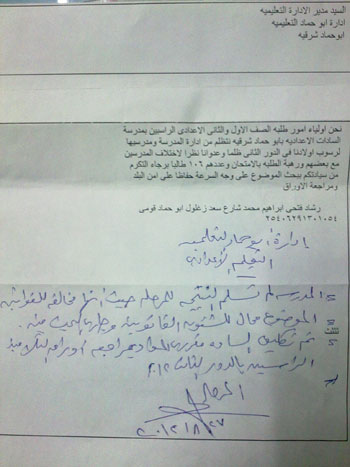 السيد مدير الادارة التعليميه
ادارة ابو حماد التعليميه
ابوحماد شرقيه
نحن اولياء امور طلبه الصف الاول والثانى الاعدادى الراسبين بمدرسة
السادات الاعداديه بابو حماد شرقيه نتظلم من ادارة المدرسة ومدرسيها
لرسوب اولادنا فى الدور الثانى ظلما وعدوانا نظرا لاختلاف المدرسين
مع بعضهم ورهبة الطلبه بالامتحان وعددهم ١٠٦ طالبا برجاء التكرم
من سيادتكم ببحث الموضوع على وجه السرعة حفاظا على امن البلد
ومراجعة الاوراق
رشاد فتحى ابراهيم محمد شارع سعد زغلول ابو حماد قومى
٢٥٤٠٦٢٩١٣٠١٠٥٤
إدارة أبوحماد التعليمية
التعليم الإعدادى
المدرسه لم تسلم للمرحله حيث أنها مخالفه
الموضوع محال للشئون القانونية
تم تكليف الساده بمراجعه أوراق التلاميذ
الراسبين بالدور الثانى ٢٠١٢
٢٠١٢/٨/٢٧